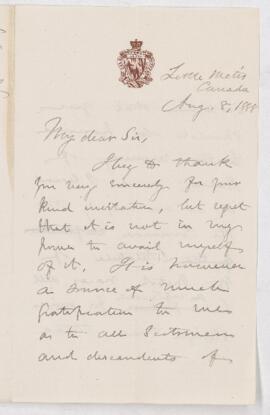 Little Metis
Canada
Aug. 8, 1888
My dear Sir,
I beg to thank
you very sincerely for your
kind invitation, but regret
that it is not in my
power to avail myself
of it. It is however
a source of much
gratification to me
as to all Scotsmen
and descendents of